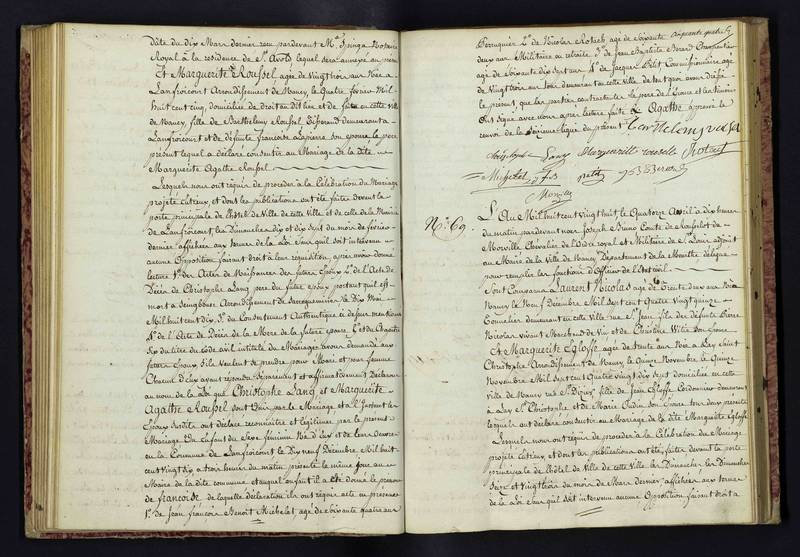 date du dix Mars dernier reçu pardevant Me Spinga Notaire
Royal à la residence de St. Avold lequel sera annexé au présent
Et Marguerite Roussel agée de vingt trois ans Née à
Lanfroicourt Arrondissement de Nancy, le Quatre février Mil
huit cent cinq, domiciliée de droit au dit lieu et de fait en cette ville
de Nancy, fille de Barthelemy Roussel Tisserand demeurant à
Lanfroicourt et de défunte Françoise Lapierre son épouse le père
présent lequel a déclaré consentir au Mariage de la dite
Marguerite Agathe Roussel
Lesquels nous ont réquis de procéder à la Célébration du Mariage
projeté entr'eux, et dont les publications ont été faites devant la
porte principale de l'hôtel de Ville de cette Ville et de celle de la Mairie
de Lanfroicourt, les Dimanches dix et dix sept du mois de février
dernier affichées aux termes de la Loi sans qu'il soit intervenu
aucune Opposition faisant droit à leur requisition, après avoir donné
lecture 1º des Actes de Naissances des futurs Epoux 2º de l'Acte de
Décès de Christophe Lang père du futur époux portant qu'il est
mort à Arrondissement de Sarreguemines le Dix Mai
Mil huit cent dix, 3º du Consentement Authentique ci dessus mentionné
4º de l'Acte de Décès de la Mère de la future épouse, et du Chapitre
Six du titre du code civil intitulé du Mariage, avons demandé aux
futurs Epoux s'ils veulent se prendre pour Mari et pour femme
Chacun d'eux ayant répondu séparément et affirmativement Déclarons
au nom de la Loi que Christophe Lang et Marguerite
Agathe Roussel sont Unis par le Mariage et à l'instant les
Epoux susdits ont déclaré reconnaître et légitimer par le présent
Mariage un Enfant du Sexe féminin Né d'eux et de leurs Oeuvres
en la Commune de Lanfroicourt le Dix neuf Décembre Mil huit
cent vingt dix à trois heures du matin présenté le même jour au
Maire de la dite commune et auquel enfant il a été donné le prénom
de françoise de laquelle déclaration ils ont réquis acte en présence
1º de Jean françois Benoit Michelet agé de soixante quatre ans
Perruquier 2º de Nicolas Rotach agé de soixante
deux ans Militaire en retraite 3º de Jean Baptiste Bérard Charpentier
agé de soixante dix sept ans 4º de Jacques Petit Commissionnaire agé
de vingt trois ans tous demeurant en cette ville de tout quoi avons dressé
le présent, que les parties contractantes le père de l'épouse et les témoins
Ont signé avec nous après lecture faite Agathe approuvé le
renvoi de la ligne du présent
christophe Lang Marguerite rousselle Rotach
Michelet petit J B Berard
Nº 69.
L'An Mil huit cent vingt huit, le Quatorze Avril à dix heures
du matin pardevant nous Joseph Bruno Comte de Rousselot de
Morville Chevalier de l'Ordre royal et Militaire de St. Louis adjoint
au Maire de la Ville de Nancy Département de la Meurthe délégué
pour remplir les fonctions d'Officier de l'Etat civil
Sont Comparus Laurent Nicolas agé de trente deux ans Né à
Nancy le Neuf Décembre Mil sept cent Quatre Vingt quinze
Tonnelier demeurant en cette Ville rue St. Jean fils des défunts Pierre
Nicolas vivant Marchand de Vin et de Christine Witre son épouse
Et Marguerite Egloffe agée de trente ans Née à Lay Saint
Christophe Arrondissement de Nancy le Quinze Novembre le Quinze
Novembre Mil sept cent Quatre vingt dix sept domiciliée en cette
ville de Nancy rue St. Dizier fille de Jean Egloffe Cordonnier demeurant
à Lay St. Christophe et de Marie Oudin son Epouse tous deux présents
lesquels ont déclaré consentir au Mariage de la dite Marguerite Egloffe
Lesquels nous ont requis de procéder à la Célébration du Mariage
projeté entr'eux, et dont les publications ont été faites devant la porte
principale de l'hôtel de Ville de cette Ville les Dimanches les Dimanches
Seize et Vingt trois du mois de Mars dernier, affichées aux termes
de la Loi sans qu'il soit intervenu aucune Opposition faisant droit à